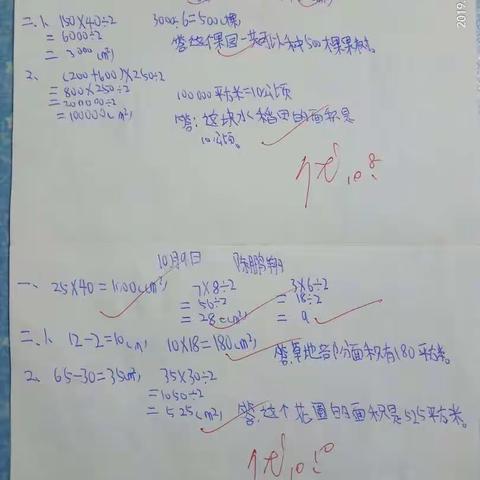 2019.
二、1、150×40÷2 3000÷6=500(棵)
=6000÷2 答:这个果园一共可以种500棵果树。
=3000(m²)
2、(200+600)×250÷2
=800×250÷2 100000平方米=10公顷
=200000÷2 答:这块水稻田的面积是
=100000(m²) 10公顷。
优 10.8
10月9日 陈鹏翔
一、25×40=1000(cm²) 7×8÷2 3×6÷2
=56÷2 =18÷2
=28(cm²) =9
二、1、12-2=10(m) 10×18=180(m²) 答:草地部分面积有180平方米。
2、65-30=35(m) 35×30÷2
=1050÷2
=525(m²) 答:这个花圃的面积是525平方米。
优 10.10